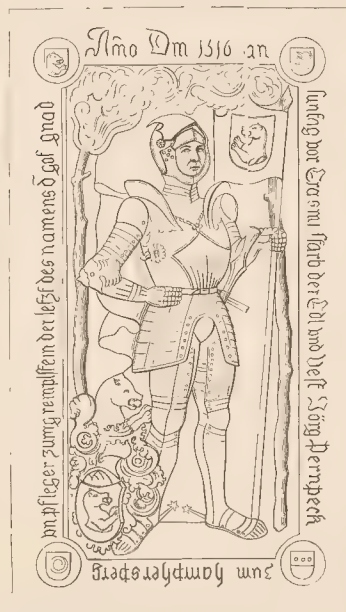 Año Dm 1516 an
suntag vor Erasmi starb der Edl und Vest Jörg Pernpeck
zum hamphersperg
vn pfleger zumg remplstein der letzt des namens d got gnad